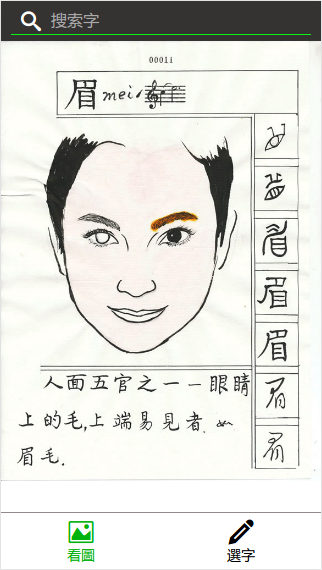 搜索字
00011
眉 mei
人面五官之一一眼睛
上的毛,上端易見者.如
眉毛.
眉
眉
看圖
選字